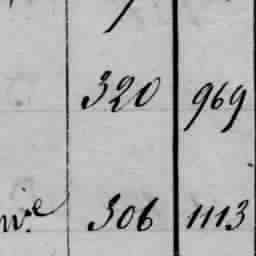 320 969
306 1113